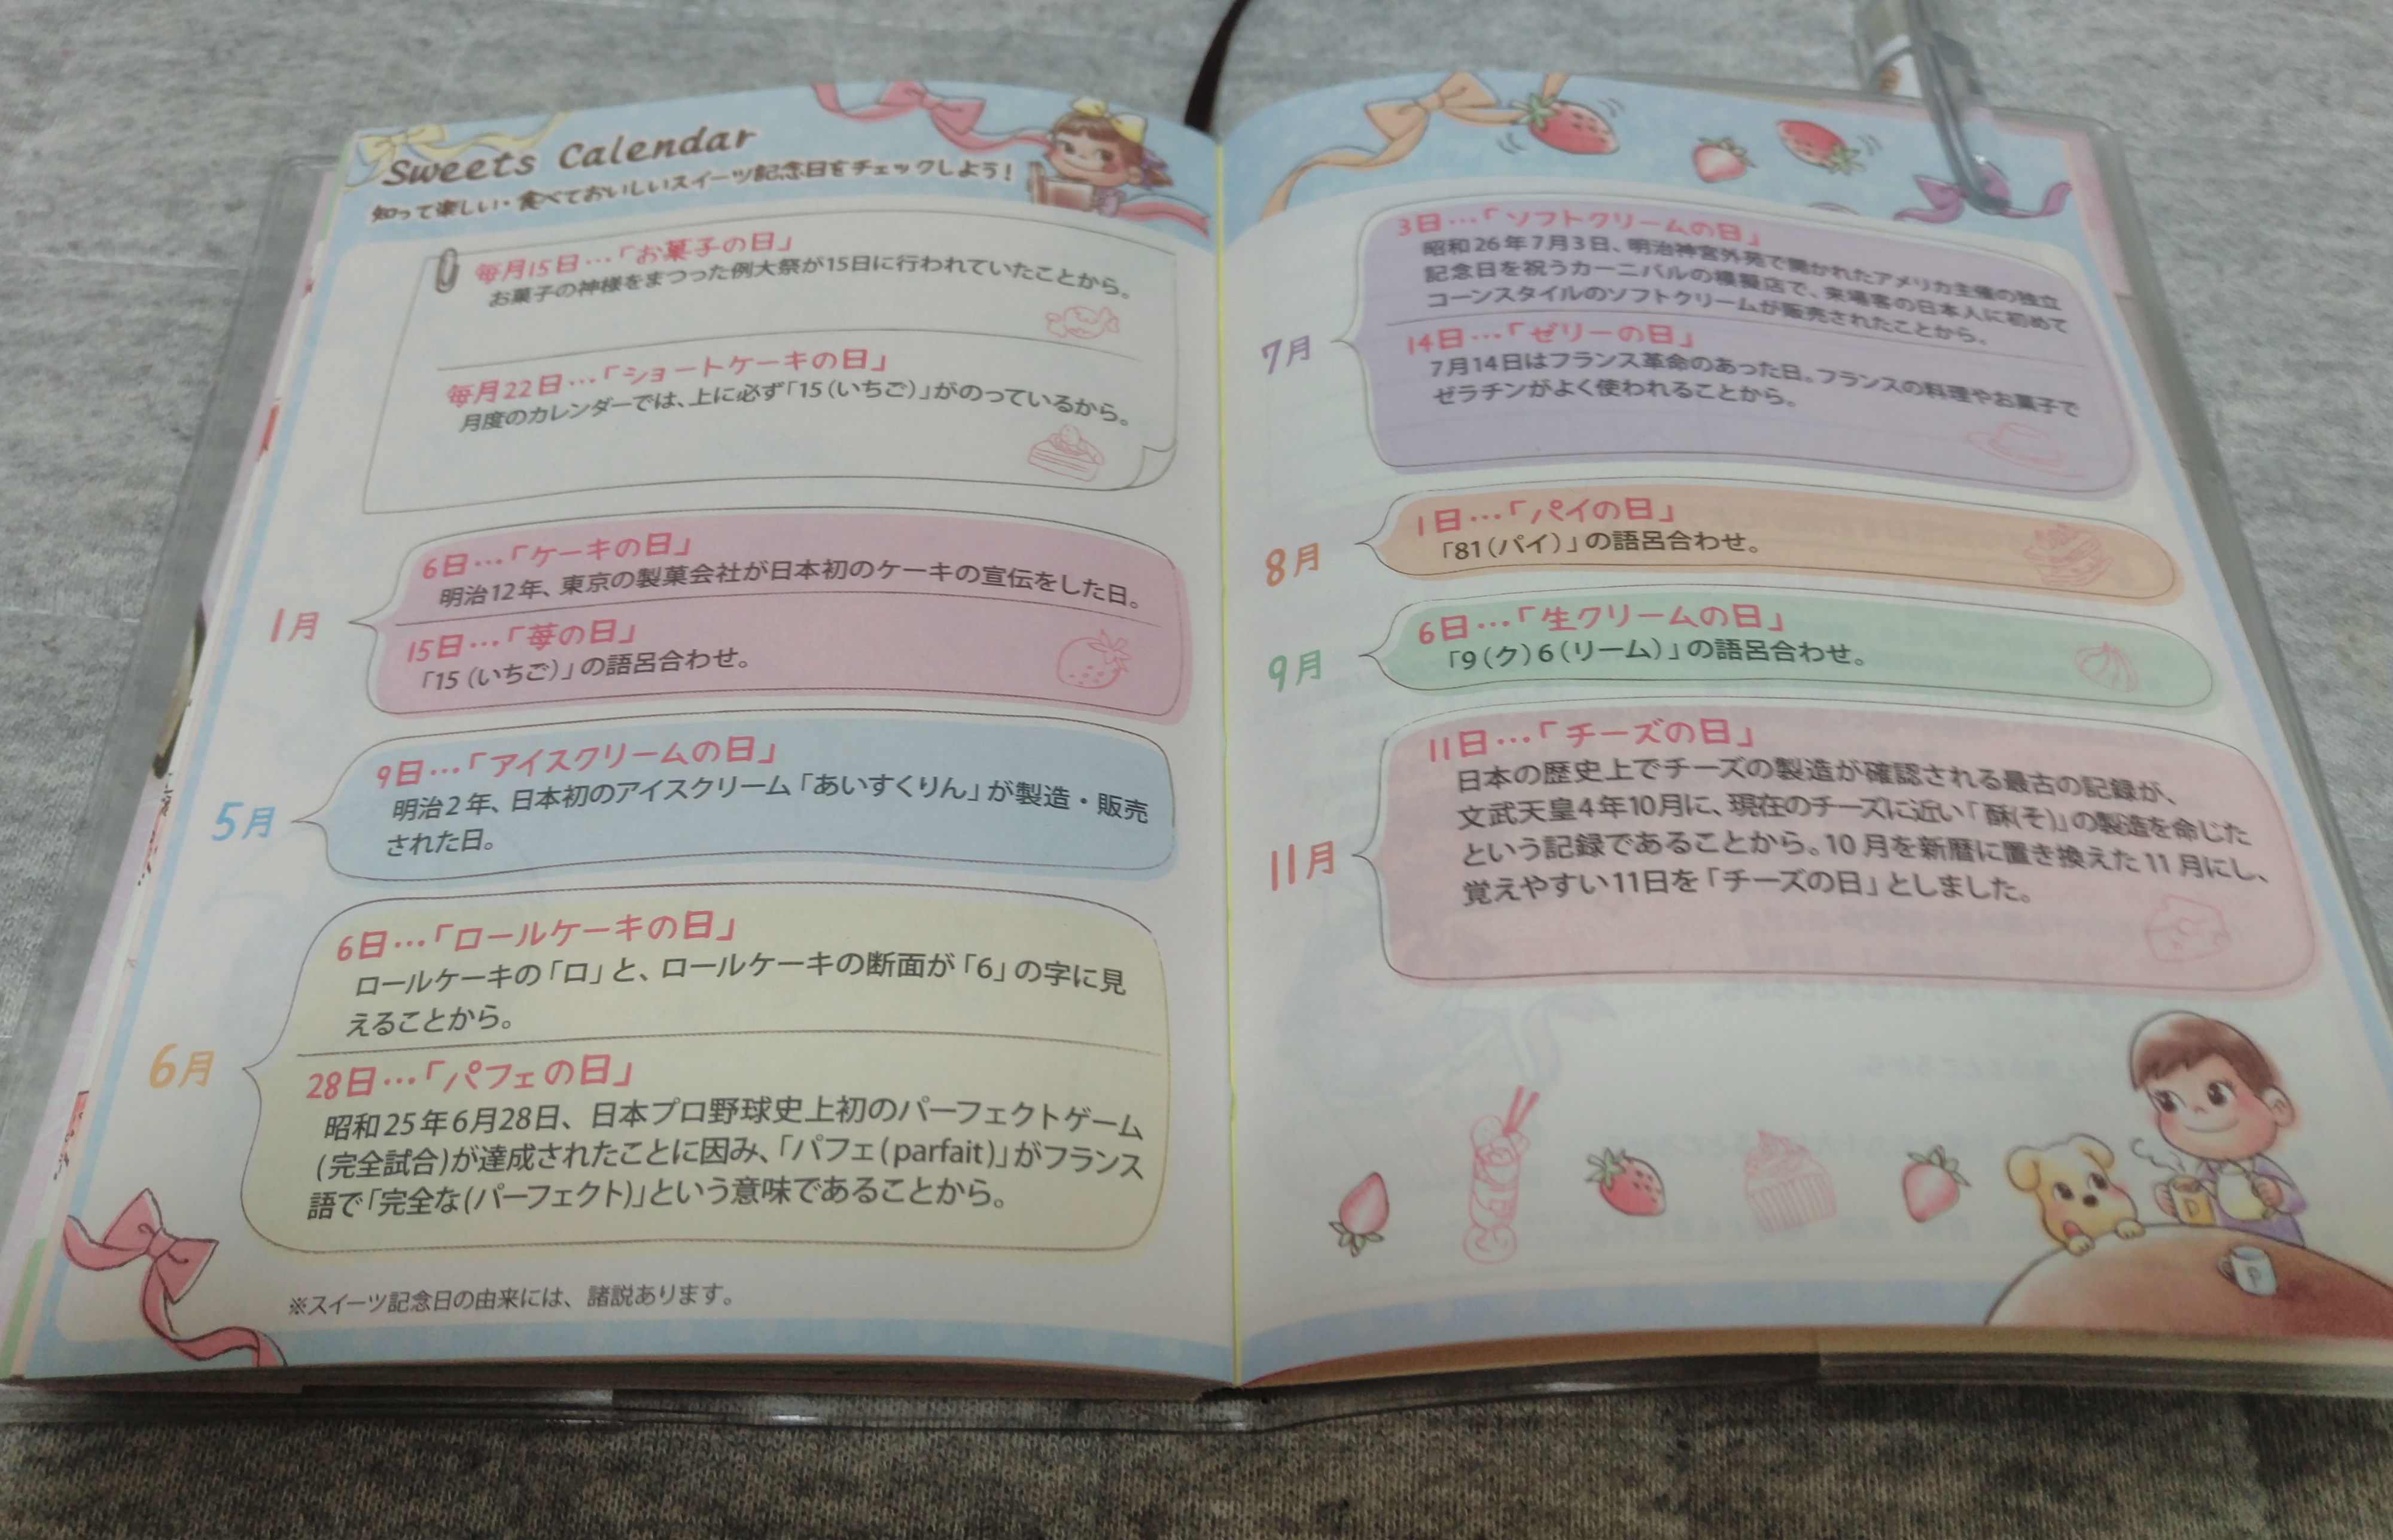 Sweets Calendar
知って楽しい・食べておいしいスイーツ記念日をチェックしよう！
毎月15日…「お菓子の日」
お菓子の神様をまつった例大祭が15日に行われていたことから。
毎月22日…「ショートケーキの日」
月度のカレンダーでは、上に必ず「15（いちご）」がのっているから。
1月
6日…「ケーキの日」
明治12年、東京の製菓会社が日本初のケーキの宣伝をした日。
15日…「苺の日」
「15（いちご）」の語呂合わせ。
5月
9日…「アイスクリームの日」
明治2年、日本初のアイスクリーム「あいすくりん」が製造・販売
された日。
6月
6日…「ロールケーキの日」
ロールケーキの「ロ」と、ロールケーキの断面が「6」の字に見
えることから。
28日…「パフェの日」
昭和25年6月28日、日本プロ野球史上初のパーフェクトゲーム
(完全試合)が達成されたことに因み、「パフェ(parfait)」がフランス
語で「完全な(パーフェクト)」という意味であることから。
※スイーツ記念日の由来には、諸説あります。
7月
3日…「ソフトクリームの日」
昭和26年7月3日、明治神宮外苑で開かれたアメリカ主催の独立
記念日を祝うカーニバルの模擬店で、来場客の日本人に初めて
コーンスタイルのソフトクリームが販売されたことから。
14日…「ゼリーの日」
7月14日はフランス革命のあった日。フランスの料理やお菓子で
ゼラチンがよく使われることから。
8月
1日…「パイの日」
「81（パイ）」の語呂合わせ。
9月
6日…「生クリームの日」
「9（ク）6（リーム）」の語呂合わせ。
11月
11日…「チーズの日」
日本の歴史上でチーズの製造が確認される最古の記録が、
文武天皇4年10月に、現在のチーズに近い「酥(そ)」の製造を命じた
という記録であることから。10月を新暦に置き換えた11月にし、
覚えやすい11日を「チーズの日」としました。
D
P